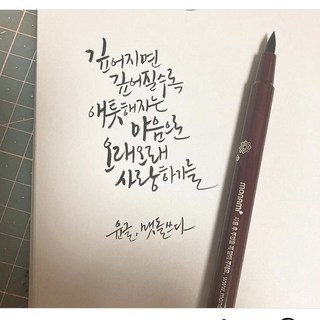 깊어지면
깊어질수록
애틋해지는
마음으로
오래오래
사랑하기를
윤글, 맷돌쓰다
monami
www.mona